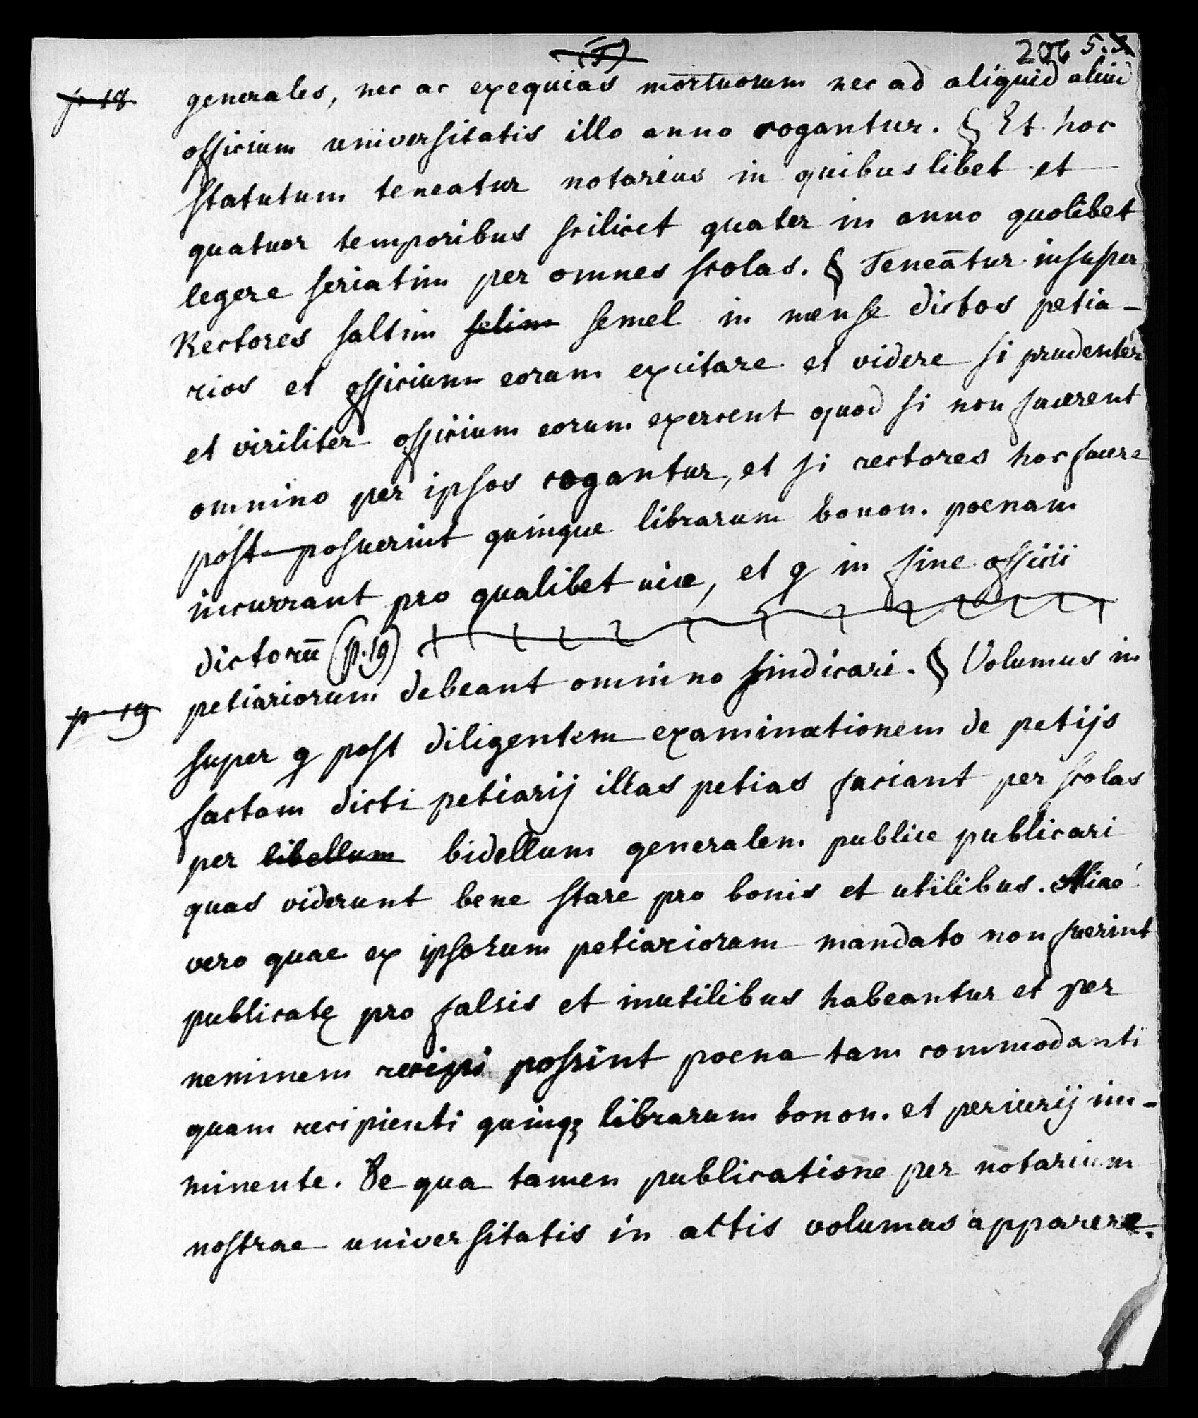 (5) 206 5.
p 18 generales, nec ac exequias mortuorum nec ad aliquid aliud
officium universitatis illo anno cogantur. § Et hoc
statutum teneatur notarius in quibuslibet et
quatuor temporibus scilicet quater in anno quolibet
legere seriatim per omnes scolas. § Teneātur insuper
Rectores saltim selim semel in mense dictos petia-
rios et officium eorum excitare et videre si prudenter
et viriliter officium eorum exercent quod si non facerent
omnino per ipsos cogantur, et si rectores hoc facere
post-posuerint quinque librarum bonon. poenam
incurrant pro qualibet vice, et q in fine officii
dictorū (p. 19)
p 19 petiariorum debeant omnino sindicari. § Volumus in
super q post diligentem examinationem de petijs
factam dicti petiarij illas petias faciant per scolas
per libellum bidellum generalem publice publicari
quas viderunt bene stare pro bonis et utilibus. Aliae
vero quae ex ipsorum petiariorum mandato non fuerint
publicatę pro falsis et inutilibus habeantur et per
neminem recipi possint poena tam commodanti
quam recipienti quinqꝫ librarum bonon. et periurij im-
minente. De qua tamen publicatione per notarium
nostrae universitatis in actis volumus apparere.